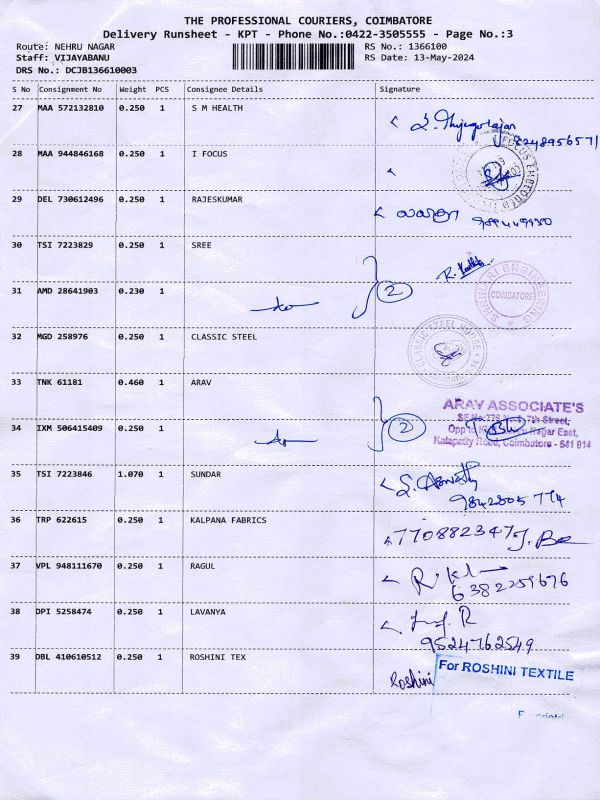 THE PROFESSIONAL COURIERS, COIMBATORE
Delivery Runsheet - KPT - Phone No.:0422-3505555 - Page No.:3
Route: NEHRU NAGAR RS No.: 1366100
Staff: VIJAYABANU RS Date: 13-May-2024
DRS No.: DCJB136610003
S No Consignment No Weight PCS Consignee Details Signature
27 MAA 572132810 0.250 1 S M HEALTH
28 MAA 944846168 0.250 1 I FOCUS
29 DEL 730612496 0.250 1 RAJESKUMAR
30 TSI 7223829 0.250 1 SREE
COIMBATORE
31 AMD 28641903 0.230 1 2
32 MGD 258976 0.250 1 CLASSIC STEEL
33 TNK 61181 0.460 1 ARAV
ARAV ASSOCIATE'S
34 IXM 506415409 0.250 1 2
Kalapatty Road, Coimbatore - 641 014
35 TSI 7223846 1.070 1 SUNDAR
9842805774
36 TRP 622615 0.250 1 KALPANA FABRICS 770882347
37 VPL 948111670 0.250 1 RAGUL
6382259676
38 DPI 5258474 0.250 1 LAVANYA
9524762549
39 DBL 410610512 0.250 1 ROSHINI TEX For ROSHINI TEXTILE
Roshini